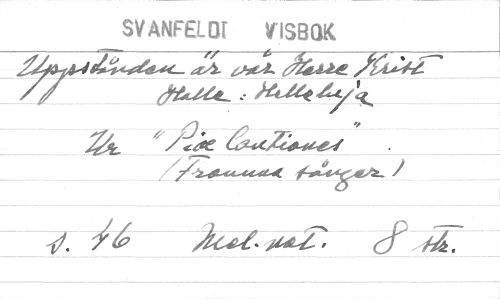 SVANFELDT VISBOK
Uppstånden är vår Herre Krist
Halle : Halleluja
Ur "Piæ Cantiones".
(Fromma sånger)
s. 46 Mel. not. 8 str.